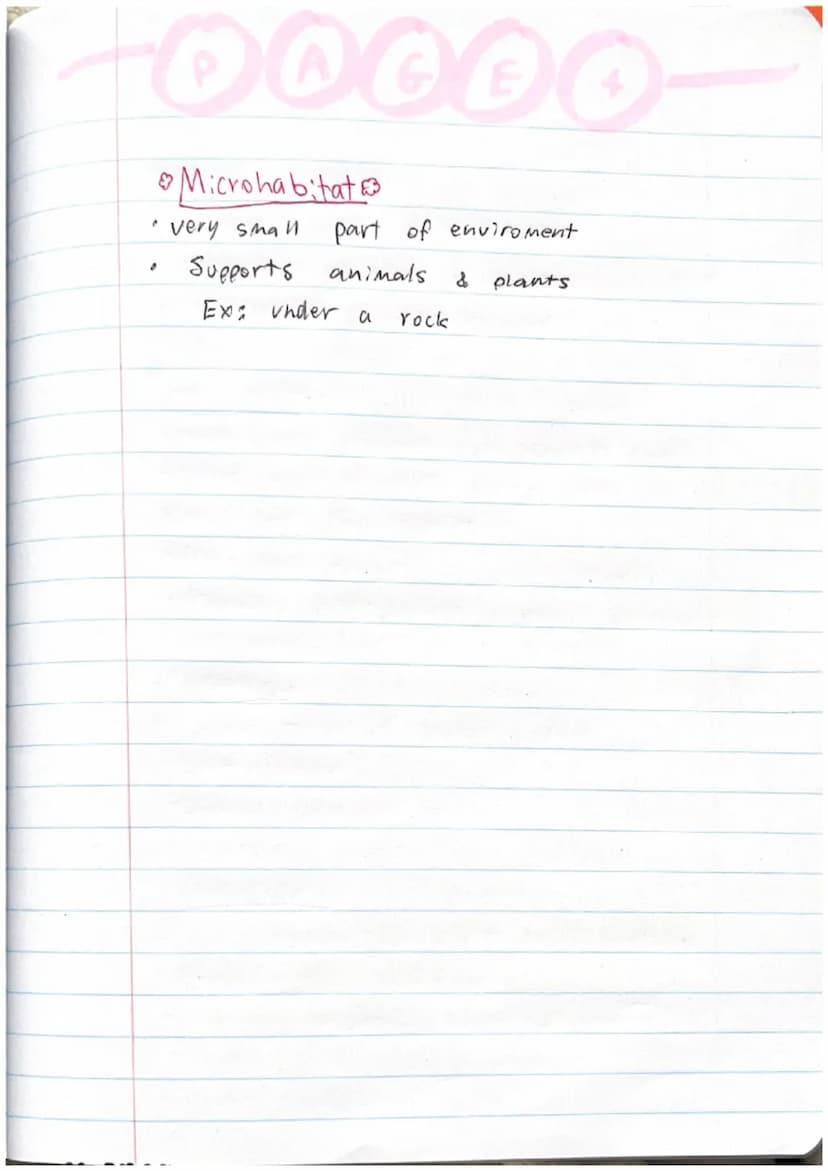 PAGE 4
Microhabitat
• very small part of enviroment
• Supports animals & plants
Ex: under a rock